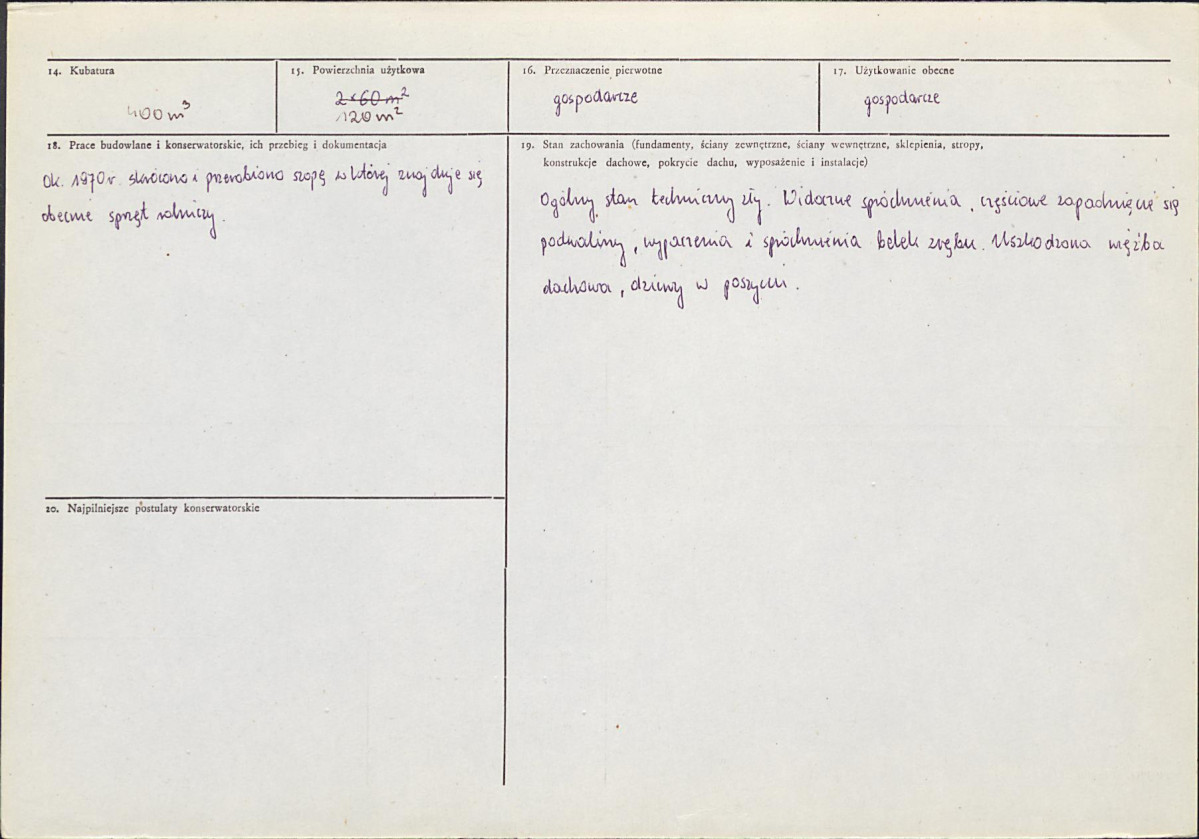 14. Kubatura
400 m³
15. Powierzchnia użytkowa
2×60 m²
120 m²
16. Przeznaczenie pierwotne
gospodarcze
17. Użytkowanie obecne
gospodarcze
18. Prace budowlane i konserwatorskie, ich przebieg i dokumentacja
Ok. 1970 r. skrócono i przerobiono szopę w której znajduje się
obecnie sprzęt rolniczy.
19. Stan zachowania (fundamenty, ściany zewnętrzne, ściany wewnętrzne, sklepienia, stropy,
konstrukcje dachowe, pokrycie dachu, wyposażenie i instalacje)
Ogólny stan techniczny zły. Widoczne spróchnienia, częściowe zapadnięcie się
podwaliny, wypaczenia i spróchnienia belek zrębu. Uszkodzona więźba
dachowa, dziury w poszyciu.
20. Najpilniejsze postulaty konserwatorskie